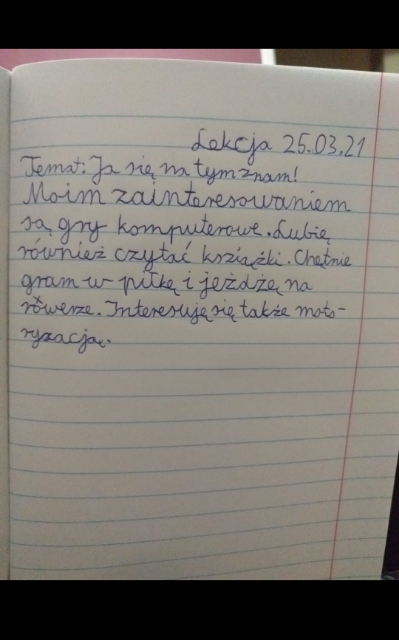 Lekcja 25.03.21
Temat: Ja się na tym znam!
Moim zainteresowaniem
są gry komputerowe. Lubię
również czytać ksziążki. Chętnie
gram w piłkę i jeżdżę na
rowerze. Interesuję się także moto-
ryzacją.